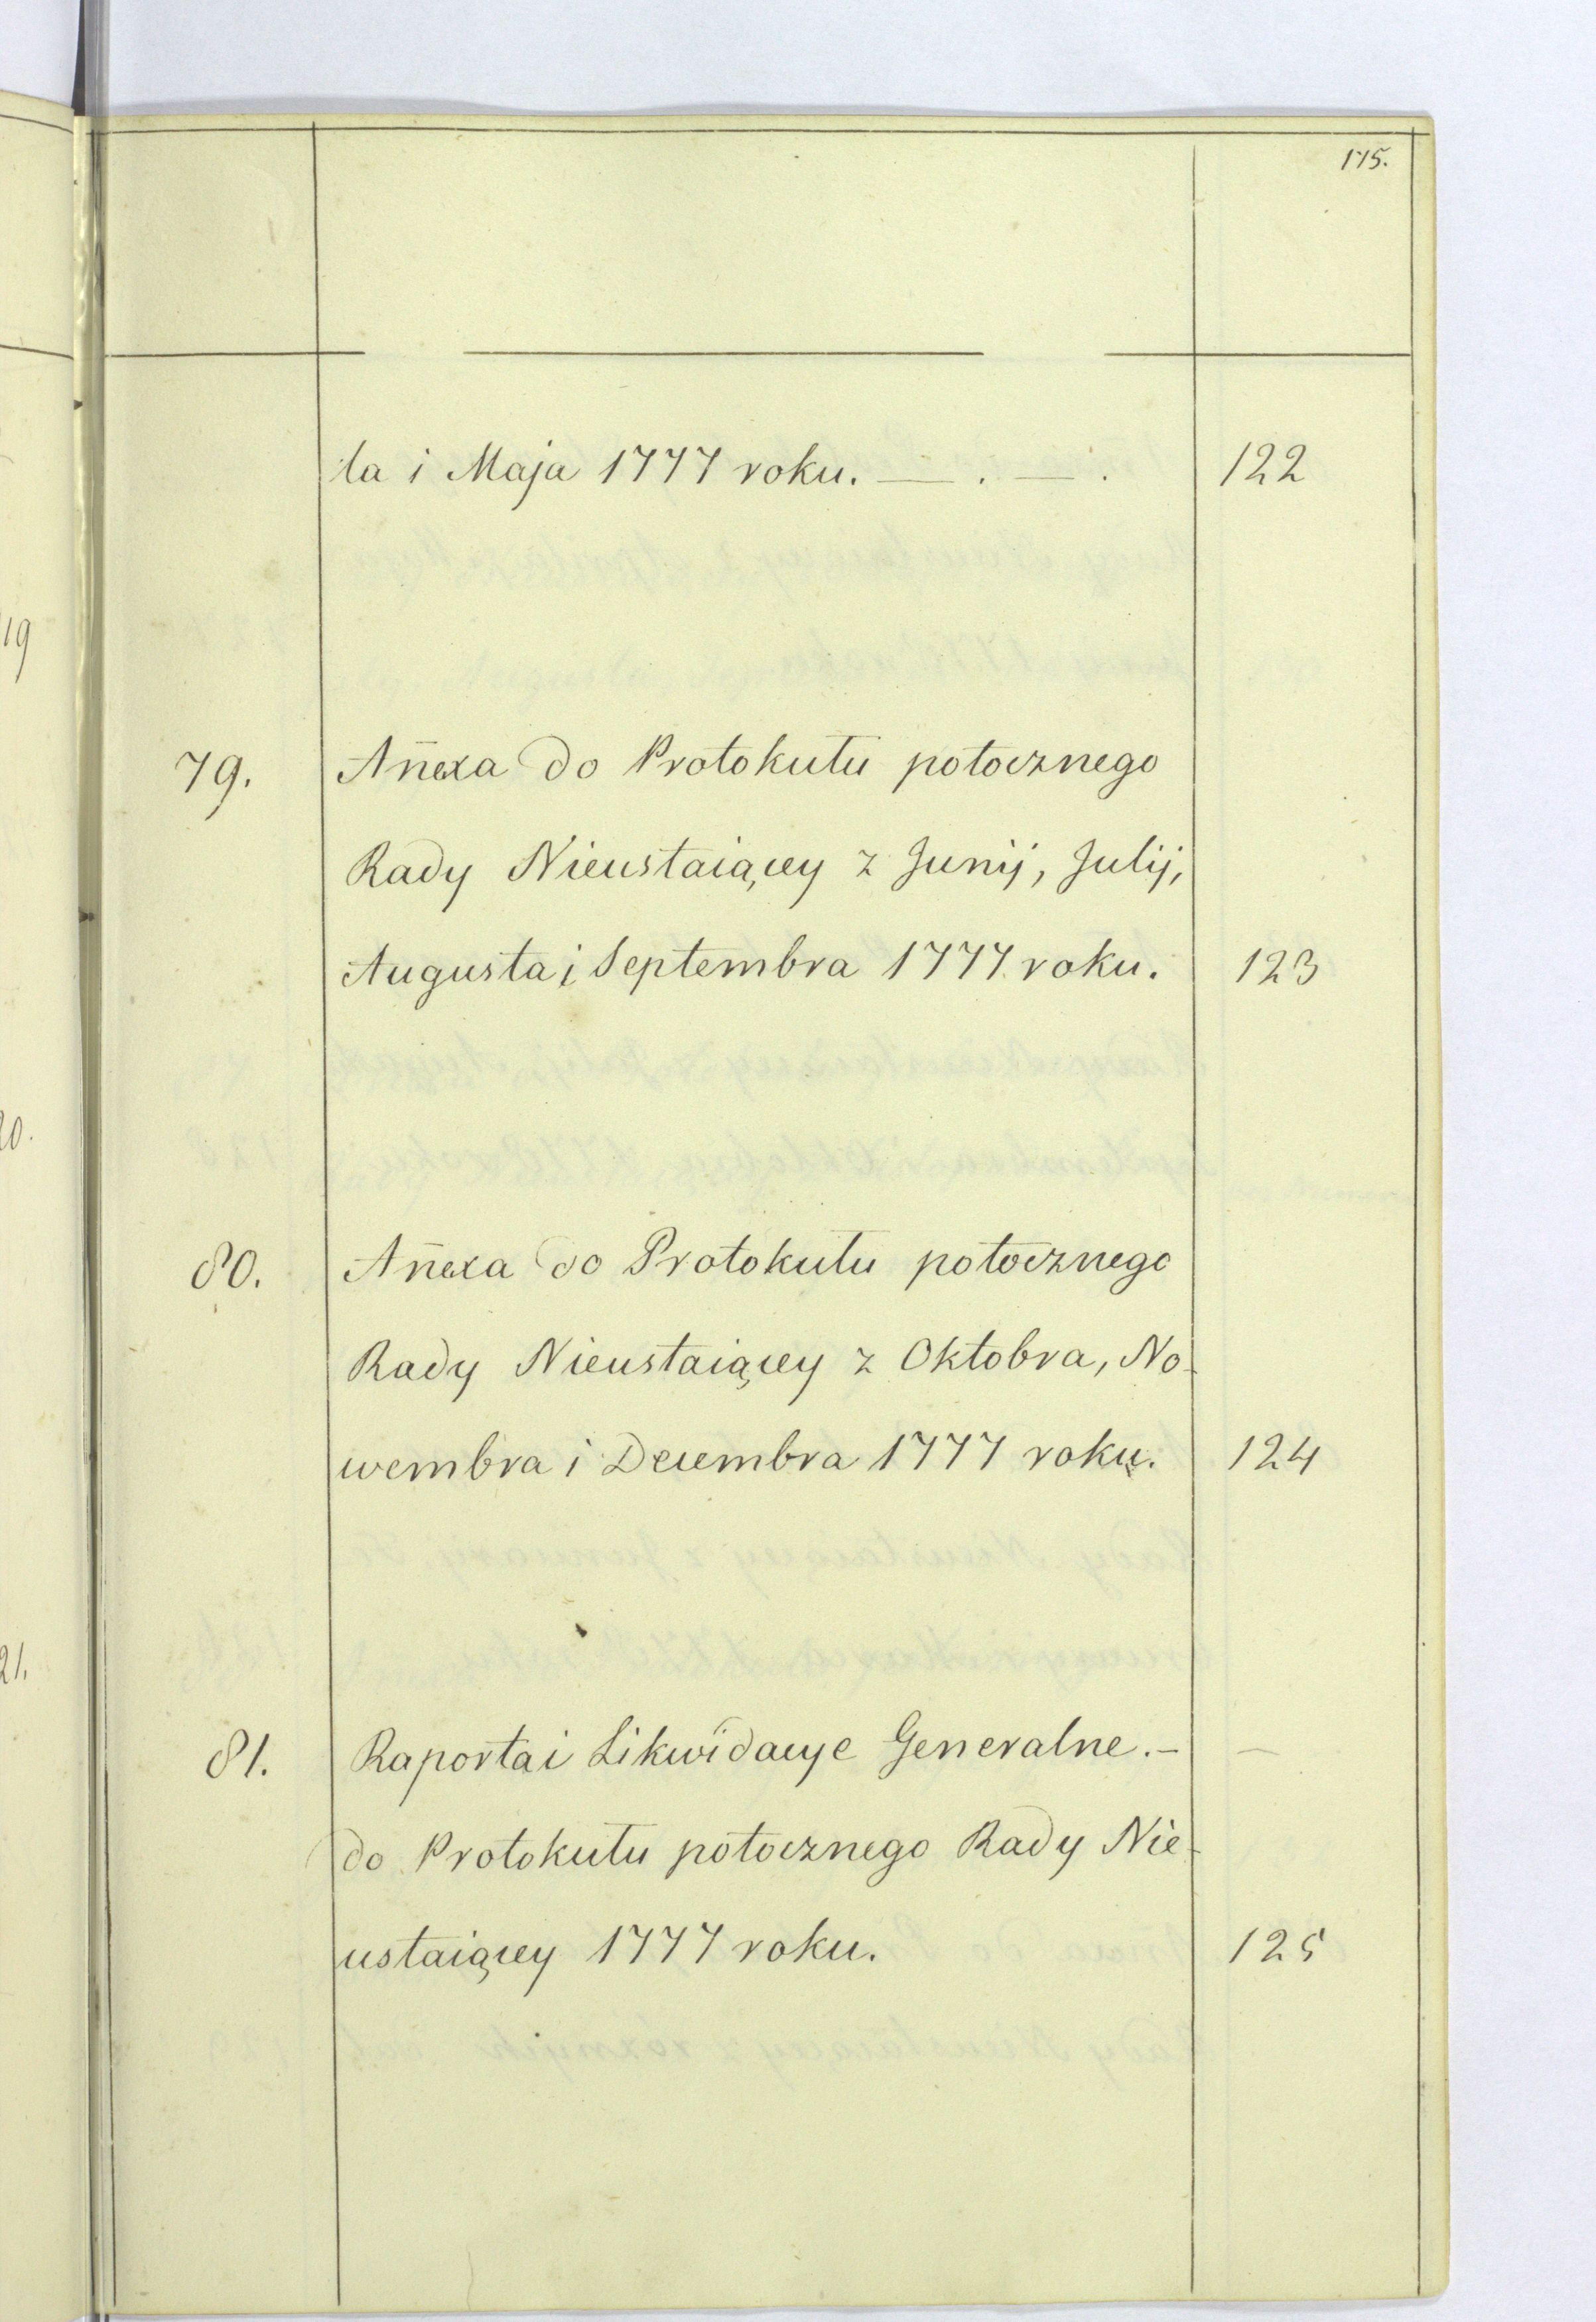 175.
la i Maja 1777 roku. — . — . 122
79. Añexa do Protokułu potocznego
Rady Nieustaiącey z Junij, Julij,
Augusta i Septembra 1777 roku. 123
80. Añexa do Protokułu potocznego
Rady Nieustaiącey z Oktobra, No-
wembra i Decembra 1777 roku. 124
81. Raporta i Likwidacye Generalne. – —
do Protokułu potocznego Rady Nie-
ustaiącey 1777 roku. 125
19
20.
21.